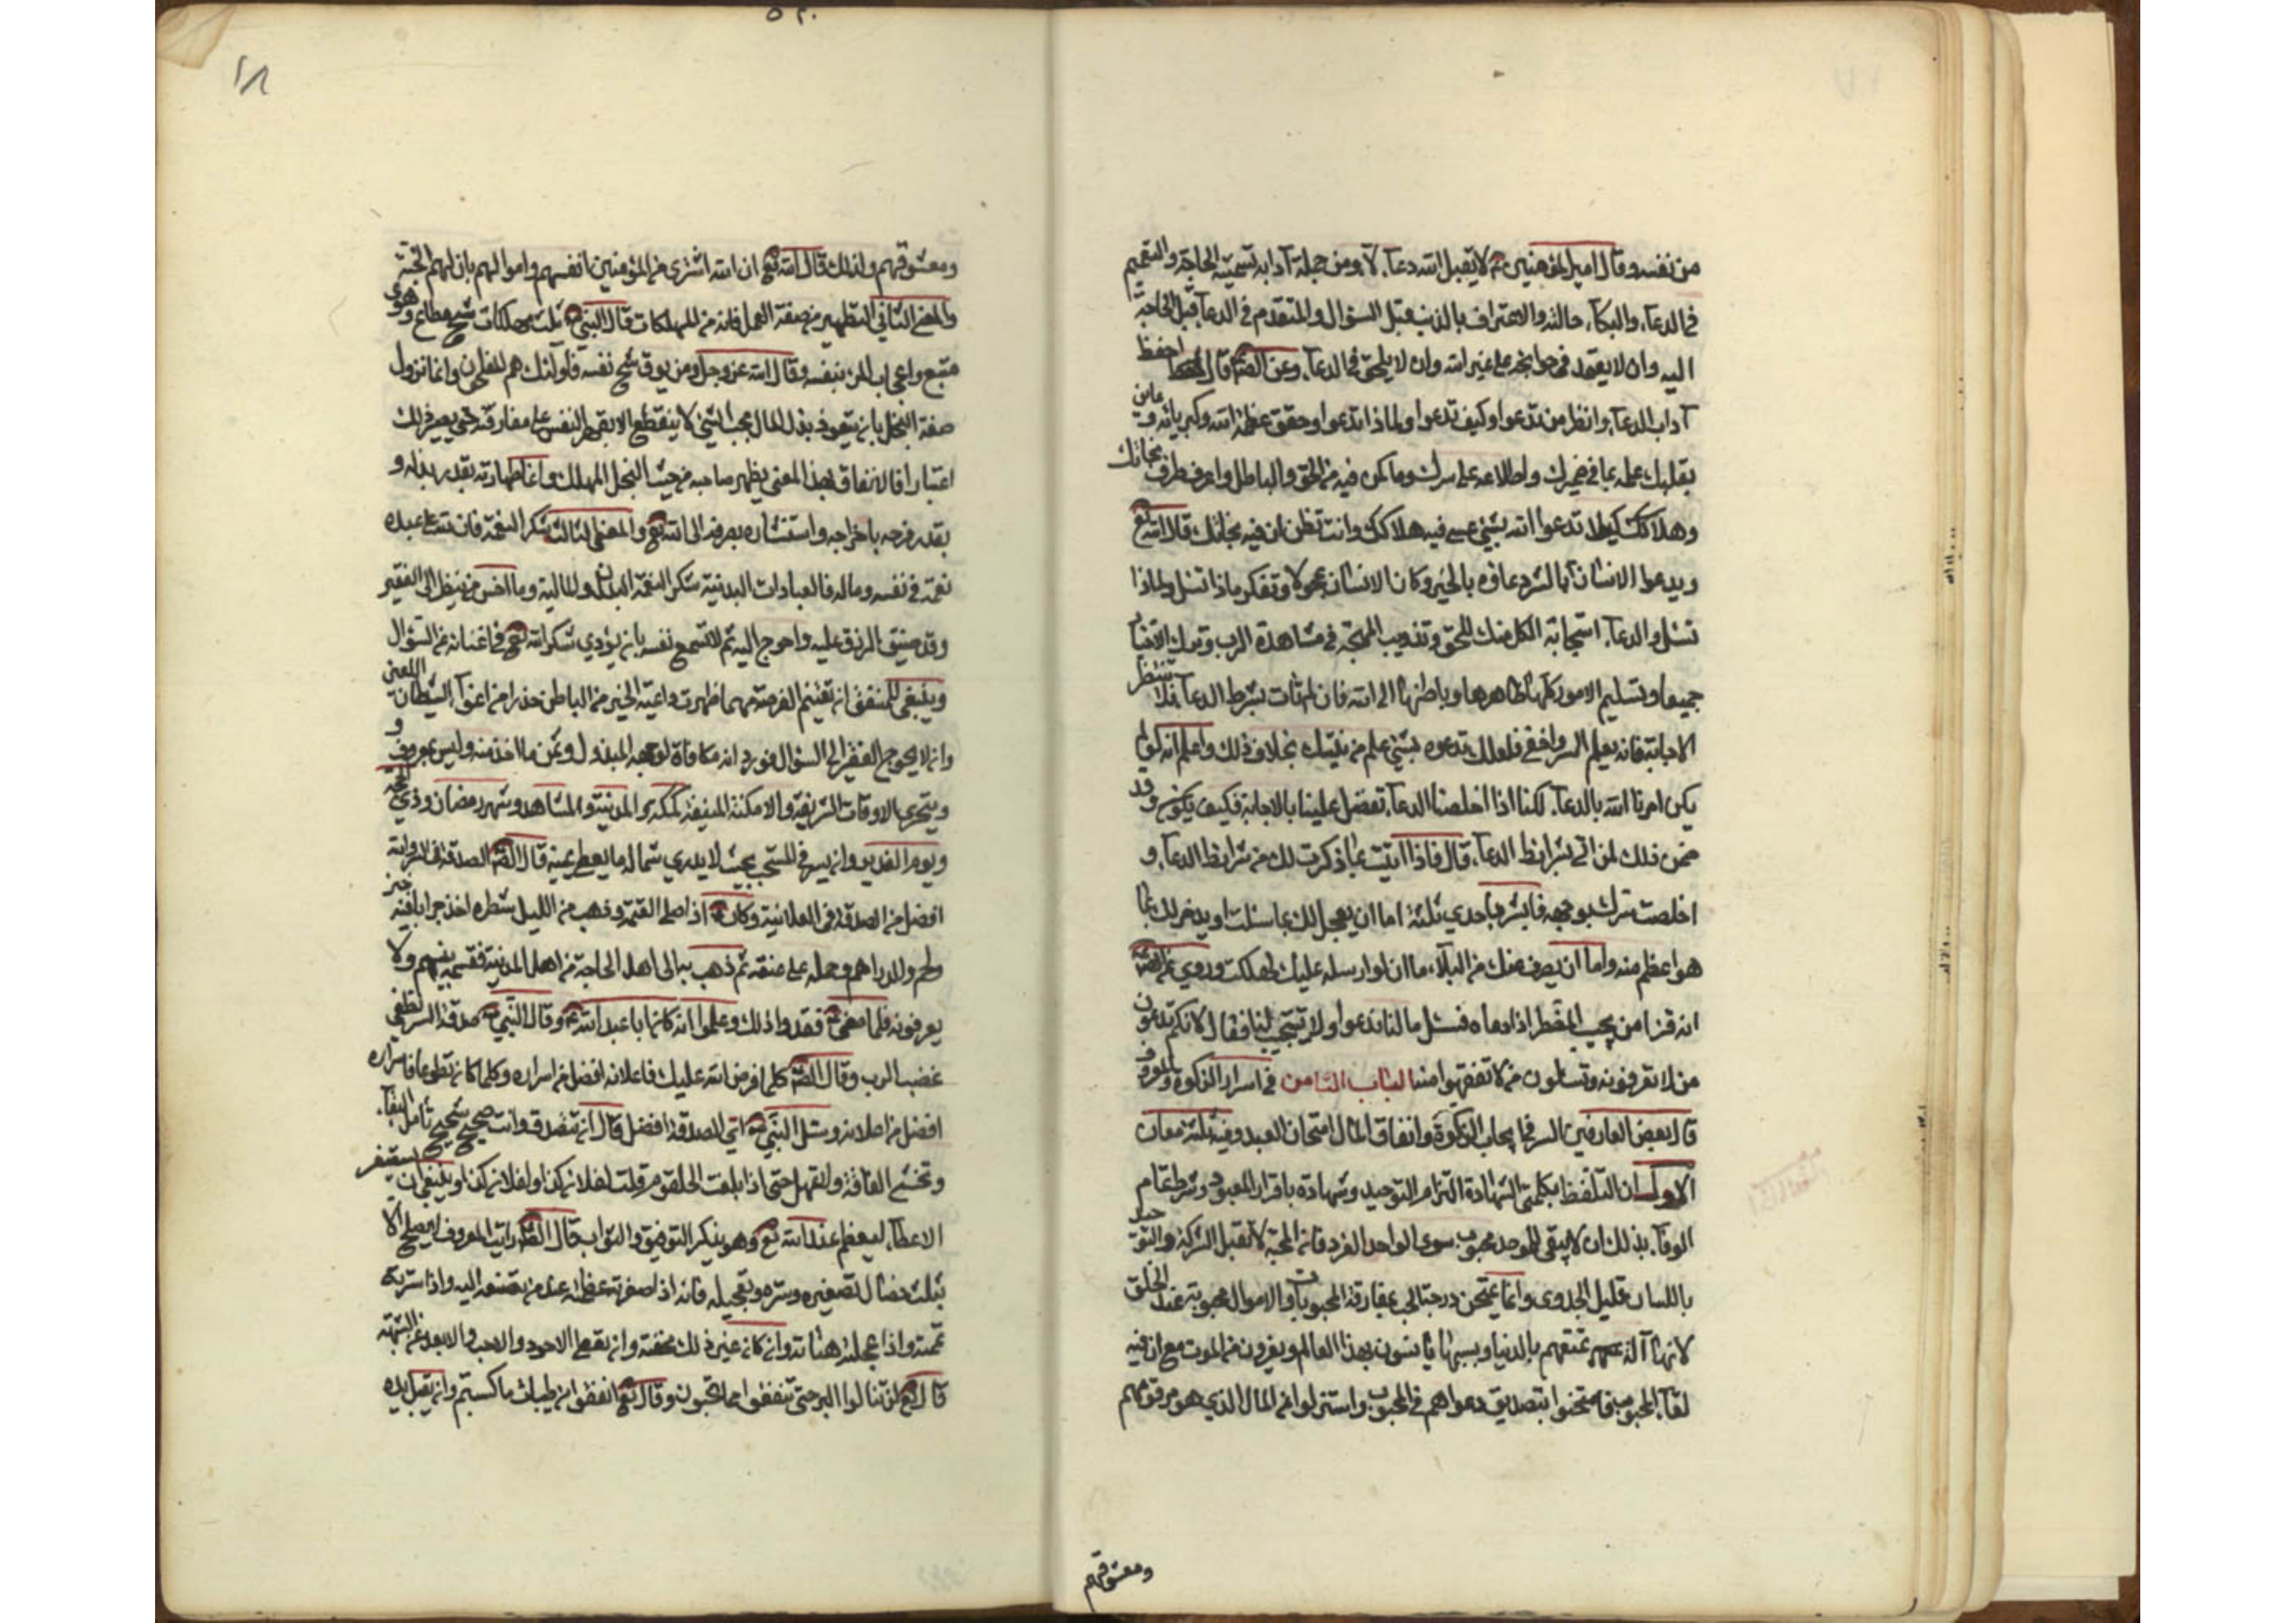 من نفسه وقال امير المؤمنين ع لا يقبل الله دعاء لاه ومن جملة آدابه تسمية الحاجة والتعميم
في الدعاء والبكاء حالته والاعتراف بالذنب قبل السؤال والتقدم في الدعاء قبل الحاجة
اليه وان لا يعتمد في حوائجه على غير الله وان لا يلحن في الدعاء وعن الصّ قال احفظ
آداب الدعاء وانظر من تدعوا وكيف تدعوا ولماذا تدعوا وحقق عظمة الله وكبريائه وعاين
بقلبك علمه بما في ضميرك واطلاعه على سرك وما يكن فيه من الحق والباطل واعرف طرق نجاتك
وهلاكك كيلا تدعوا الله بشيء عسى فيه هلاكك وانت تظن ان فيه نجاتك قال الله تع
ويدعوا الانسان بالشر دعاؤه بالخير وكان الانسان عجولا وتفكر ماذا تسئل ولماذا
تسئل والدعاء استجابة الكل منك للحق وتذويب المهجة في مشاهدة الرب وترك الاختيار
جميعا وتسليم الامور كلها ظاهرها وباطنها الى الله فان لم تات بشرط الدعاء فلا تنتظر
الاجابة فانه يعلم السر واخفى فلعلك تدعوه بشيء علم من نيتك بخلاف ذلك واعلم انه لو لم
يكن امرنا الله بالدعاء لكنا اذا اخلصنا الدعاء تفضل علينا بالاجابة فكيف يكون وقد
ضمن ذلك لمن اتى بشرائط الدعاء قال فاذا اتيت بما ذكرت لك من شرائط الدعاء و
اخلصت سرك بوجهه فابشر باحدى ثلثة اما ان يعجل لك بما سئلت او يدخر لك بما
هو اعظم منه واما ان يصرف عنك من البلاء ما ان لو ارسله عليك لهلكت وروي عن الصّ
انه قرأ امن يجيب المضطر اذا دعاه فسئل ما لنا ندعوا ولا تستجيب لنا فقال لانكم تدعون
من لا تعرفونه وتسالون من لا تفقهوا منه الباب الثامن في اسرار الزكوة والمعروف
قال بعض العارفين السر في ايجاب الزكوة وانفاق المال امتحان العبد وفيه ثلثة معان
الاول ان التلفظ بكلمتي الشهادة التزام التوحيد وشهادة بافراد المعبود وشرط تمام
الوفاء بذلك ان لا يبقى للموحد محبوب سوى الواحد الفرد فان المحبة لا تقبل الشركة والتوحيد
باللسان قليل الجدوى وانما يمتحن درجة المحب بمفارقة المحبوبات والاموال محبوبة عند الخلق
لانها آلة تمتعهم بالدنيا وبسببها يانسون بهذا العالم ويفرون من الموت مع ان فيه
لقاء المحبوب فامتحنوا بتصديق دعواهم في المحبوب واستنزلوا عن المال الذي هو مرموقهم
ومعشوقهم
ومعشوقهم ولذلك قال الله تع ان الله اشترى من المؤمنين انفسهم واموالهم بان لهم الجنة
والمعنى الثاني التطهير من صفة البخل فانه من المهلكات قال النبي ص ثلث مهلكات شح مطاع وهوى
متبع واعجاب المرء بنفسه وقال الله عز وجل ومن يوق شح نفسه فاولئك هم المفلحون وانما تزول
صفة البخل بان يتعود بذل المال فحب الشيء لا ينقطع الا بقهر النفس على مفارقته حتى يصير ذلك
اعتيادا فالانفاق بهذا المعنى يطهر صاحبه من خبث البخل المهلك وانما طهارته بقدر بذله و
بقدر فرحه باخراجه واستبشاره بصرفه الى الله تع والمعنى الثالث شكر النعمة فان لله على عبده
نعمة في نفسه وماله فالعبادات البدنية شكر النعمة البدن والمالية وما اخس من ينظر الى الفقير
وقد ضيق الرزق عليه واحوج اليه ثم لا تسمح نفسه بان يؤدي شكر الله تع في اغنائه عن السؤال
وينبغي للمنفق ان يغتنم الفرصة مهما ظهرت داعية الخير من الباطن حذرا من اغواء الشيطان اللعين
وان لا يحوج الفقير الى السؤال فورد انه مكافاة لوجهه المبذول وثمن ما اخذ منه وليس بمعروف و
ويتحرى الاوقات الشريفة والامكنة المنيفة كمكة والمدينة والمشاهد وشهر رمضان وذي الحجة
ويوم الغدير وان يسر في المستحب بحيث لا يدري شماله ما يعطي يمينه قال الصّ الصدقة في السر والله
افضل من الصدقة في العلانية وكان ع اذا صلى العتمة وذهب من الليل شطره اخذ جرابا فيه خبز
ولحم والدراهم وحمله على عنقه ثم ذهب به الى اهل الحاجة من اهل المدينة فقسمه فيهم ولا
يعرفونه فلما مضى ع فقدوا ذلك وعلموا انه كان ابا عبد الله ع وقال النبي ص صدقة السر تطفي
غضب الرب وقال الصّ كلما فرض الله عليك فاعلانه افضل من اسراره وكلما كان تطوعا فاسراره
افضل من اعلانه وسئل النبي ص اي الصدقة افضل قال ان تتصدق وانت صحيح شحيح تامل البقاء
وتخشى الفاقة ولا تمهل حتى اذا بلغت الحلقوم قلت لفلان كذا ولفلان كذا وينبغي ان يستصغر
الاعطاء ليعظم عند الله تع وهو يذكر التوفيق والثواب قال الصّ رايت المعروف لا يصلح الا
بثلث خصال تصغيره وستره وتعجيله فانه اذا صغرته عظمته عند من تصنعه اليه واذا سترته
تممته واذا عجلته هناته وان كان غير ذلك محقته وان يعطي الاجود والاحب والابعد عن الشبهة
قال تع لن تنالوا البر حتى تنفقوا مما تحبون وقال تع انفقوا من طيبات ما كسبتم وان يقبل يده